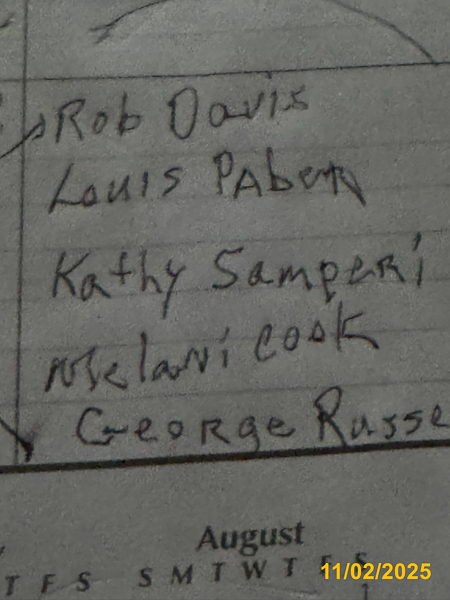 Rob Davis
Louis PAben
Kathy Samperi
Melani cook
George Russe
August
T F S S M T W T F S
1
11/02/2025